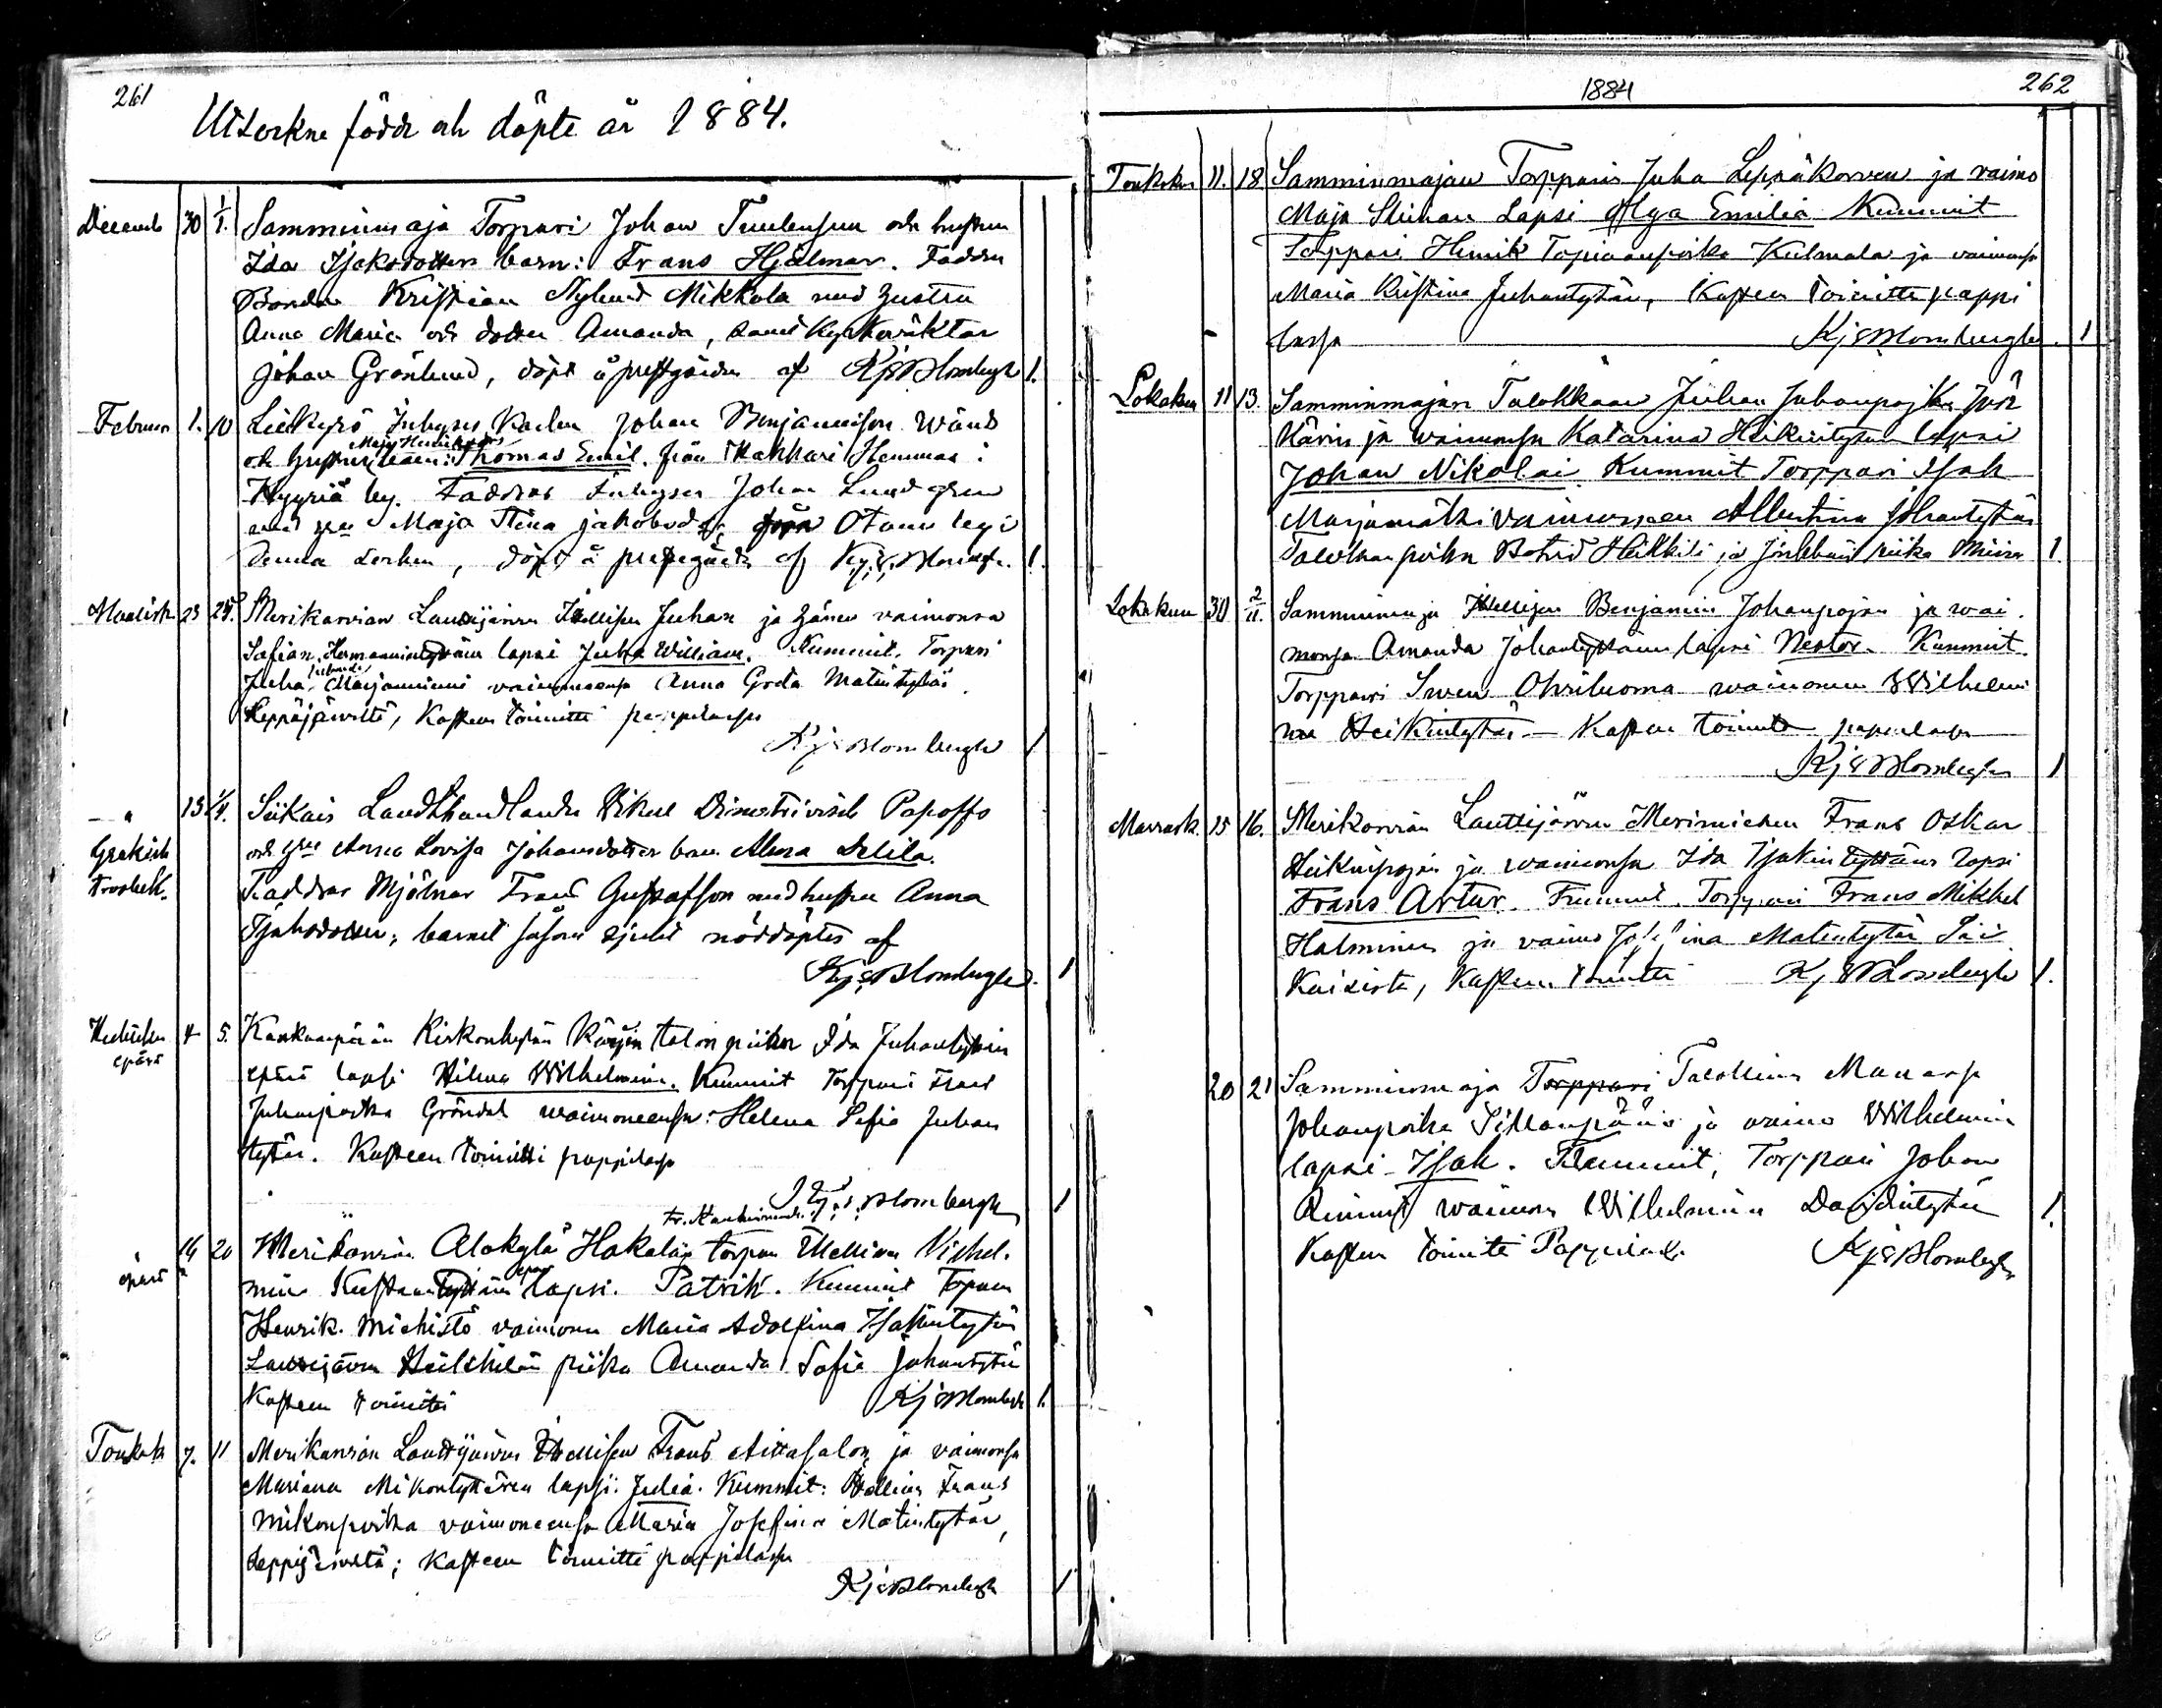 261
Utsockne födde och döpte år 1884.
Decemb 30 1/1. Samminmaja Torpari Johan Tuulensuu och hustrun
Ida Isaksdotters barn: Frans Hjalmar. Faddrar
Bonden Kristian Nylund Mikkola med hustru
Anna Maria och dotter Amanda, samt Kyrkoväktar
Johan Grönlund, döpt å prestgården af Kj: Blombergh 1.
Februar 1. 10 Johan Benjaminson
Maja
och hustrus barn: Thomas Emil. från
by. Faddrar Inhyses Johan Lundgren
med Maja Stina Jakobsdr, från Otamo by i
denna socken, döpt å prestgården af 1.
Maalisk 23 24. Merikarvian Lauttijärven Itsellisen Juhan ja hänen vaimonsa
Sofian Hermannintyttären lapsi Juha William. Kummit. Torpari
Juha Marjaniemi vaimonensa Anna Greta Matintytär
Leppäjärveltä, Kasteen toimitti pappilassa
Kj: Blombergh 1
" 13 1/4. Siikais Landthandlanden Dimitrivitsch Popoff
Grekisk
och Anna Lovisa Johansdotter barn Alma Delila.
Trosbek.
Faddrar Mjölnar Frans Gustafsson med hustru Anna
Isaksdotter; barnet såsom sjukt nöddöptes af
Kj: Blombergh. 1
Huhtikuu 4 5. Kankaanpään Kirkonkylän talon piian Ida Juhantyttären
epärä
epärä lapsi Hilma Wilhelmina. Kummit Torppari Frans
Juhanpoika Gröndal waimoneensa Helena Sofia Juhan
tytär. Kasteen toimitti pappilassa
Kj: Blombergh 1
14 20 Merikarvian Alakylä Hakalan torpan Itellinen Vilhel-
epärä
epär
minan Kustaantyttären lapsi. Patrik. Kummit Torpan
Henrik. Michistö vaimonsa Maria Adolfina Isakintytär
Lauttijärven Heikkilän piika Amanda Sofia Juhantytär
Kasteen toimitti Kj: Blombergh 1.
Toukok 7. 11 Merikarvian Lauttijärven Itsellisen Frans Aittasalon ja vaimonsa
Mariana Mikontyttären lapsi: Julia. Kummit: Itsellinen Frans
Mikonpoika vaimoneensa Maria Josefina Matintytär,
Leppijärveltä; Kasteen toimitti pappilassa
Kj: Blombergh 1
1884 262
Toukokuu 11. 18 Samminmajan Torpparin Juha Leppäkorven ja vaimo
Maja Stinan Lapsi Olga Emilia Kummit
Torppari Henrik Tapionpoika Kulmala ja vaimonsa
Maria Kristina Juhantytär, Kasteen toimitti pappi
lassa Kj: Blombergh. 1
Lokakuu 11 13. Samminmajan Talokkaan Juhan Juhanpojan
ja waimonsa Katarina Heikintytären lapsi
Johan Nikolai. Kummit Torppari Isak
Marjamäki vaimoneen Albertina Johantytär
Talokkaan poika Heikkilä ja piika Miina 1.
Lokakuu 30 2/11. Samminmaja Itsellisen Benjamin Johanpojan ja wai-
monsa Amanda Johantyttären lapsi Nestor. Kummit.
Torppari Swen Ohriluoma waimoneen Wilhelmi
na Heikintytär — Kasteen toimitti pappilassa
Kj: Blombergh 1
Marrask. 15 16. Merikarvian Lauttijärven Merimiehen Frans Oskar
Heikinpojan ja waimonsa Ida Isakintyttären lapsi
Frans Artur. Kummit. Torppari Frans Mikkel
Halminen ja vaimo Josefina Matintytär Sii
kaisista, Kasteen toimitti Kj: Blombergh 1.
20 21 Samminmaja Torppari Talollinen Manasse
Johanpoika Sillanpään ja vaimo Wilhelmin
lapsi Isak. Kummit, Torppari Johan
waimonsa Wilhelmina Davidintytär 1.
Kasteen toimitti Pappilassa Kj: Blombergh